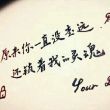 原来你一直没走远
还被着我的灵魂
Your S